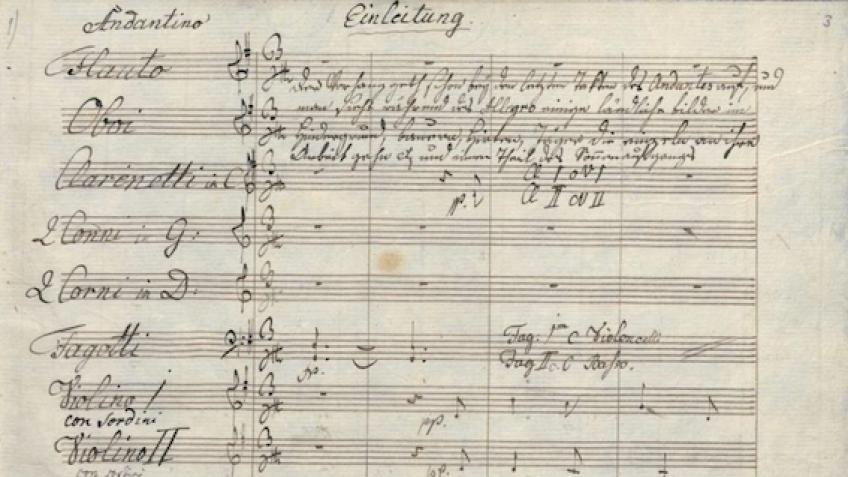 1)
Andantino
Einleitung.
3
Flauto
Der Vorhang geth schon bey den letzten Takten des Andantes auf, und
man sieht während des Allegro einige ländliche bilder im
Oboi
Hindergrund, bauern, Hirten, Jäger die einzeln an ihre
Arbeit gehn und einen Theil des Sonnenaufgangs
Clarinetti in C
pp.
2 Corni in G:
2 Corni in D:
Fagotti
Fag: C Violoncelli
Fag II C Basso.
Violino I
con Sordini
pp.
Violino II
pp.